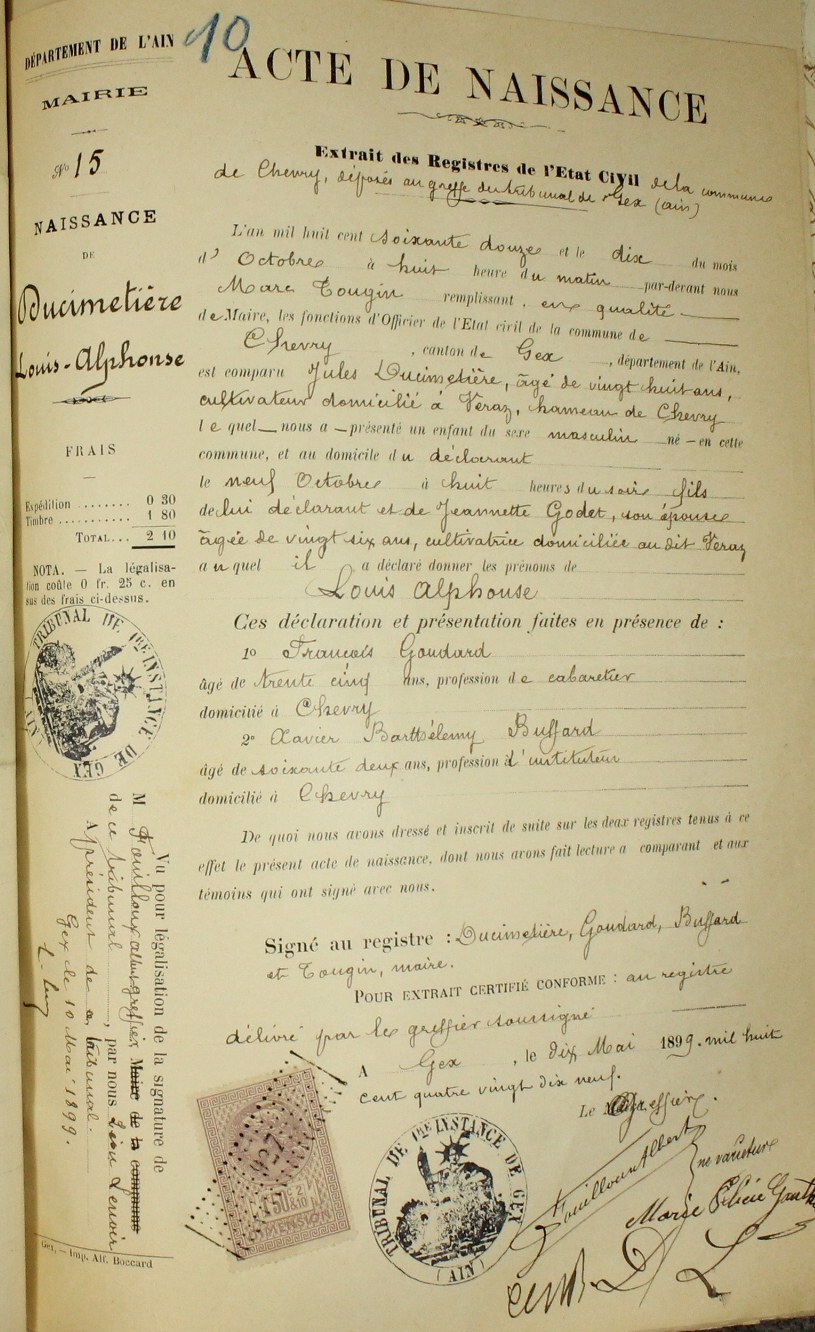 10
DÉPARTEMENT DE L'AIN
MAIRIE
N° 15
NAISSANCE
DE
Ducimetière
Louis-Alphonse
FRAIS
Expédition ........ 0 30
Timbre ........... 1 80
TOTAL... 2 10
NOTA. — La légalisa-
tion coûte 0 fr. 25 c. en
sus des frais ci-dessus.
TRIBUNAL DE 1re INSTANCE DE GEX (AIN)
Vu pour légalisation de la signature de
M Fouilloux Albert greffier Maire de la commune
de ce tribunal, par nous Léon Lenoir
Président de ce tribunal.
Gex le 10 Mai 1899.
Gex, — Imp. Alf. Boccard
ACTE DE NAISSANCE
Extrait des Registres de l'Etat Civil de la commune
de Chevry, déposés au greffe du tribunal de Gex (ain)
L'an mil huit cent soixante douze et le dix du mois
d' Octobre à huit heure du matin par-devant nous
Marc Tougin remplissant en qualité
de Maire, les fonctions d'Officier de l'Etat civil de la commune de
Chevry, canton de Gex, département de l'Ain,
est comparu Jules Ducimetière, âgé de vingt huit ans,
cultivateur domicilié à Veraz, hameau de Chevry
lequel nous a présenté un enfant du sexe masculin né en cette
commune, et au domicile du déclarant
le neuf Octobre à huit heures du soir fils
de lui déclarant et de Jeannette Godet, son épouse
âgée de vingt six ans, cultivatrice domiciliée au dit Veraz
auquel il a déclaré donner les prénoms de
Louis Alphonse
Ces déclaration et présentation faites en présence de :
1° François Goudard
âgé de trente cinq ans, profession de cabaretier
domicilié à Chevry
2° Xavier Barthélemy Buffard
âgé de soixante deux ans, profession d'instituteur
domicilié à Chevry
De quoi nous avons dressé et inscrit de suite sur les deux registres tenus à ce
effet le présent acte de naissance, dont nous avons fait lecture a comparant et aux
témoins qui ont signé avec nous.
Signé au registre : Ducimetière, Goudard, Buffard
et Tougin, maire.
POUR EXTRAIT CERTIFIÉ CONFORME : au registre
délivré par le greffier soussigné
A Gex, le dix Mai 1899. mil huit
cent quatre vingt dix neuf.
Le Greffier.
Fouilloux Albert
ne varietur
Marie Félicie
927
DIMENSION
TRIBUNAL DE 1re INSTANCE DE GEX
(AIN)